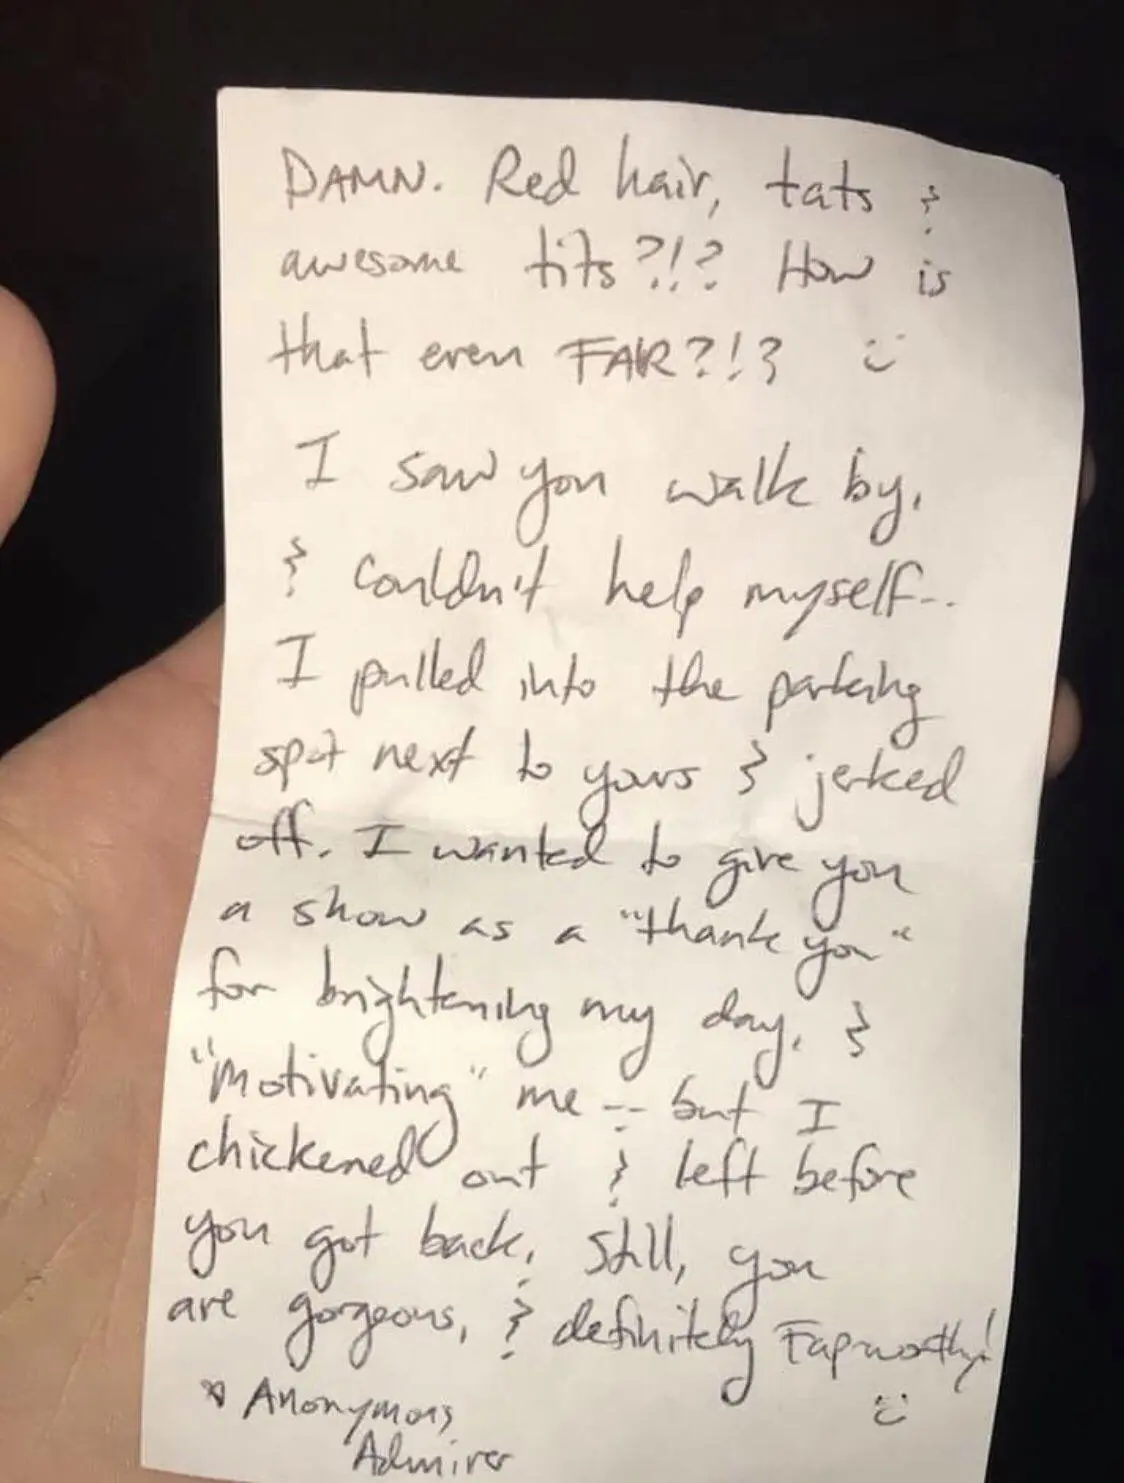 DAMN. Red hair, tats &
awesome tits?!? How is
that even FAIR?!? :)
I saw you walk by,
& couldn't help myself--
I pulled into the parking
spot next to yours & jerked
off. I wanted to give you
a show as a "thank you"
for brightening my day, &
"motivating" me -- but I
chickened out & left before
you got back. Still, you
are gorgeous, & definitely Fapworthy!
:)
Anonymous
Admirer